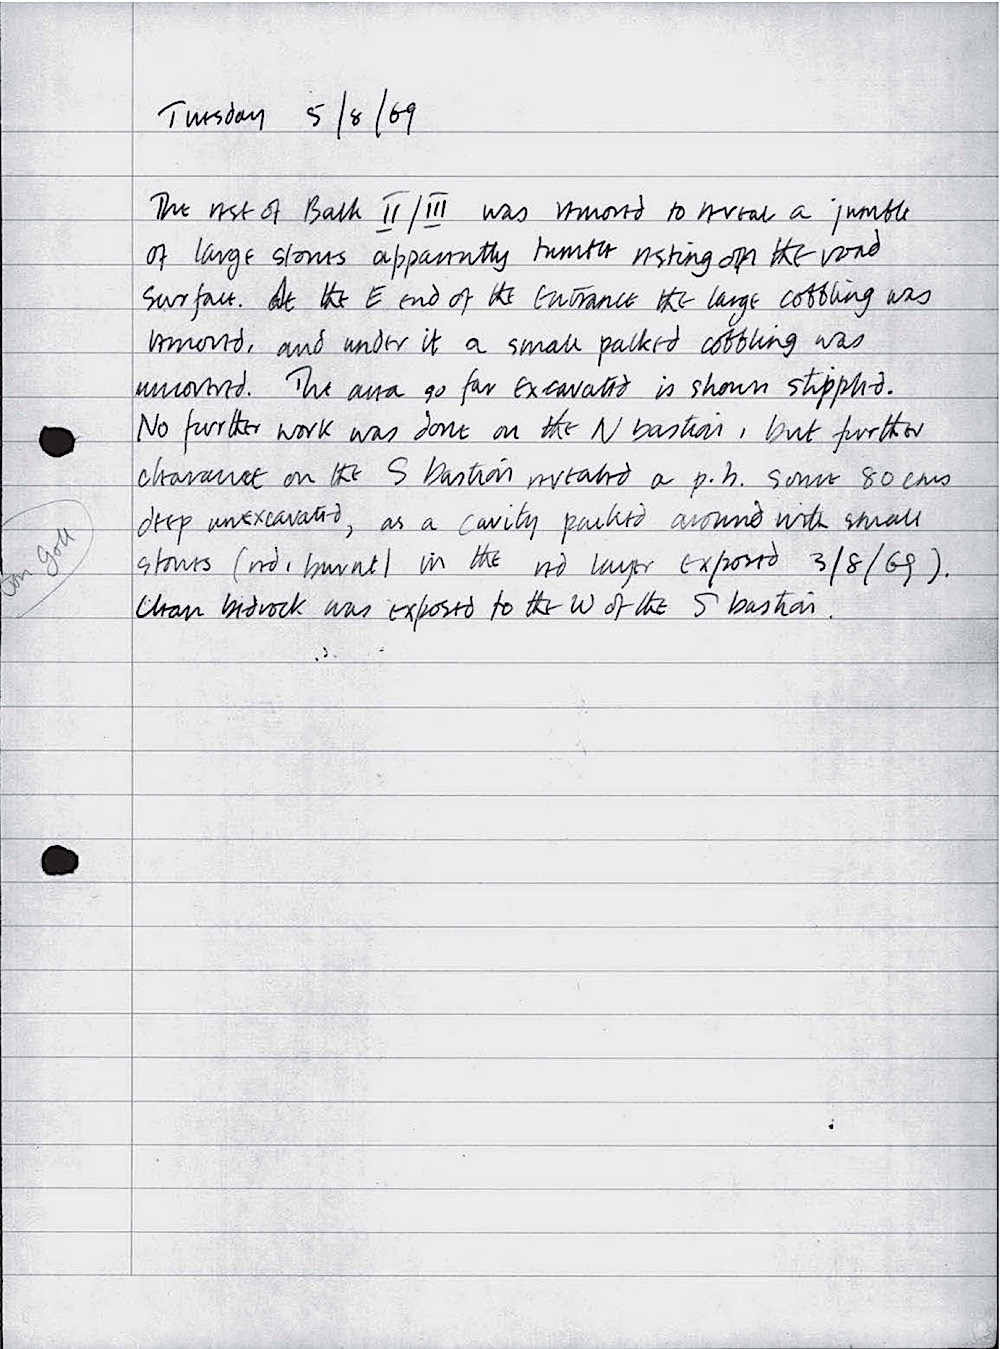 Tuesday 5/8/69
The rest of Balk II/III was removed to reveal a jumble
of large stones apparently tumble resting on the road
surface. At the E end of the Entrance the large cobbling was
removed, and under it a small packed cobbling was
uncovered. The area so far Excavated is shown stippled.
No further work was done on the N bastion, but further
clearance on the S bastion revealed a p.h. some 80 cms
deep unexcavated, as a cavity packed around with small
stones (red, burnt) in the red layer exposed 3/8/69).
Clean bedrock was exposed to the W of the S bastion.